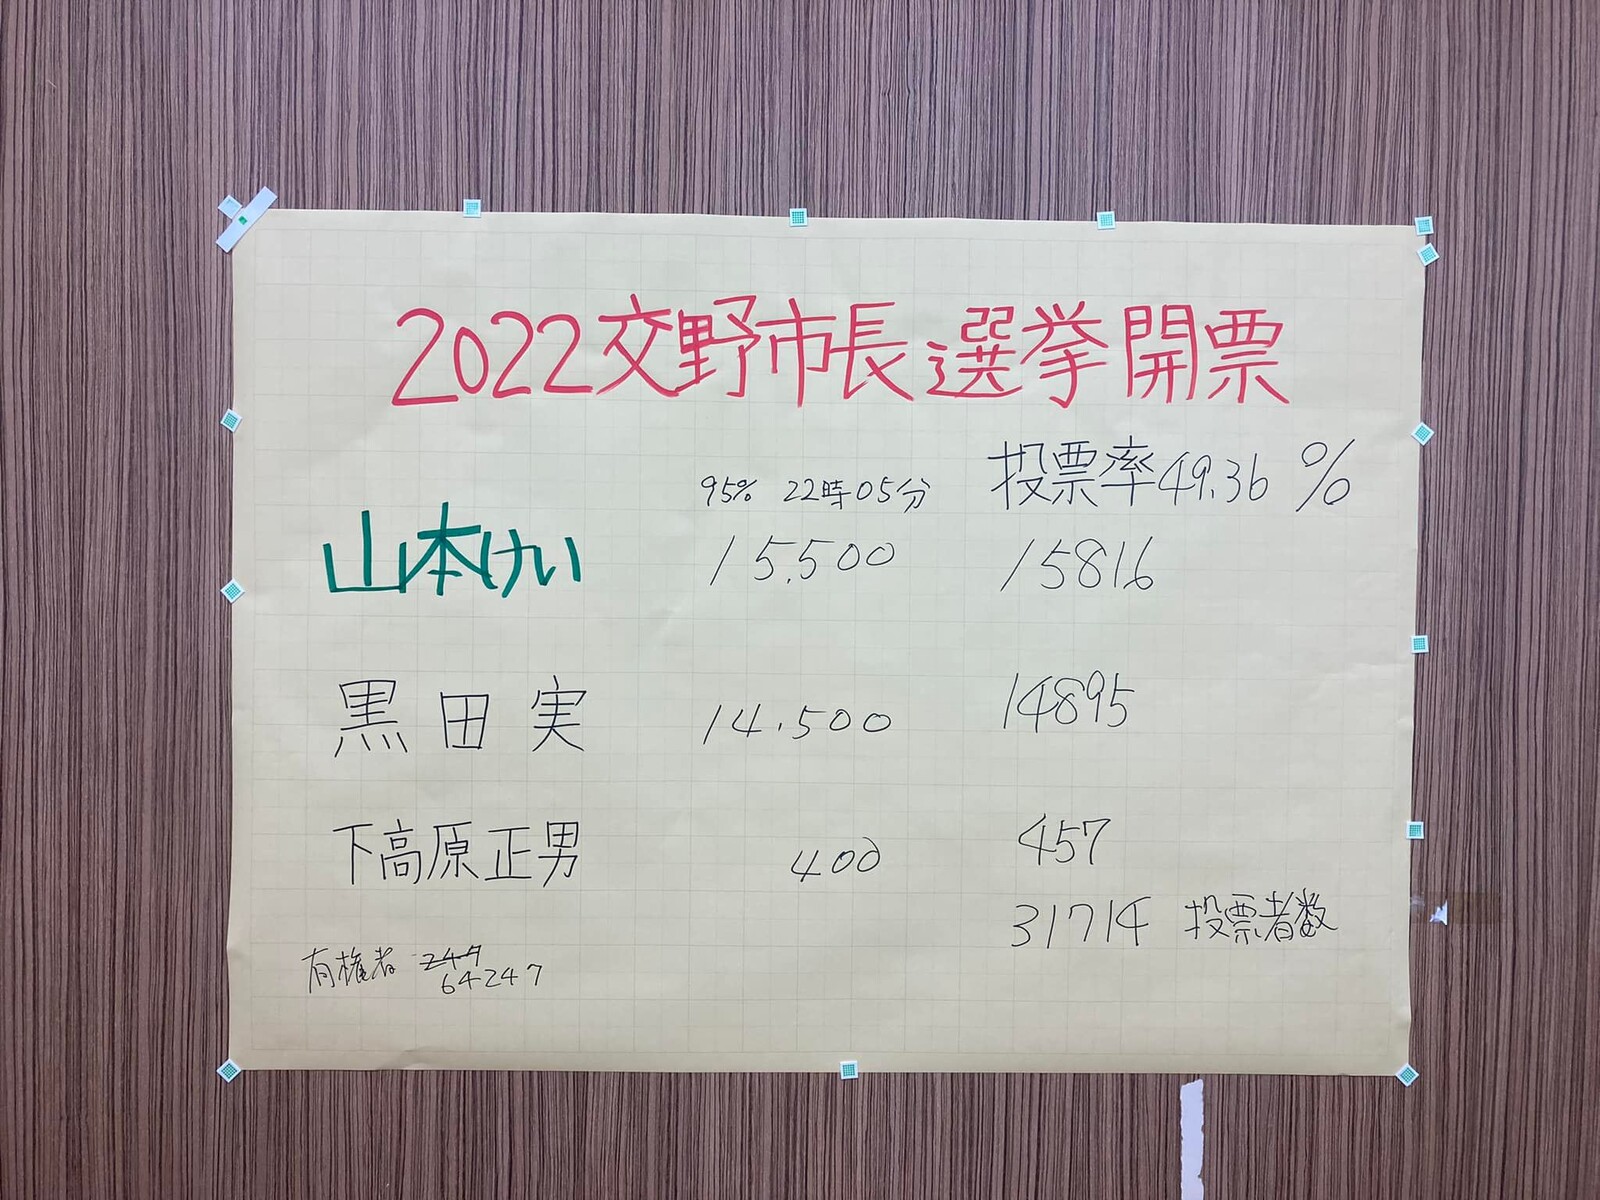 2022交野市長選挙開票
投票率49.36%
95% 22時05分
山本けい 15,500 15816
黒田実 14,500 14895
下高原正男 400 457
31714 投票者数
有権者 247
64247